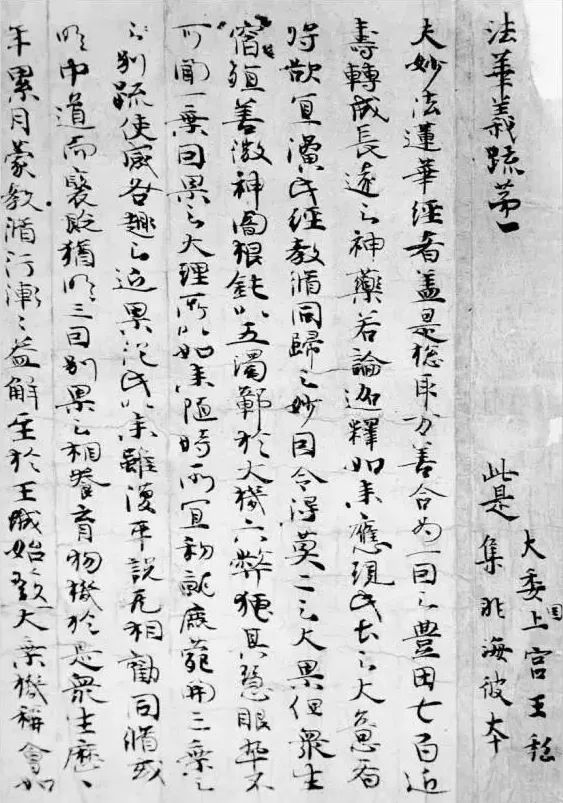 法華義疏第一
此是
大委国上宮王私
集非海彼本
夫妙法蓮華經者盖是惣取万善合為一因之豊田七百近
壽轉成長遠之神藥若論迦釋如来應現此土之大意者
将欲宜演此經教脩同歸之妙因令得莫二之大果但衆生
宿殖善微神闇根鈍以五濁鄣於大機六弊掩其慧眼卒不
可聞一乗因果之大理所以如来随時所宜初就鹿苑開三乗之
別疏使感各趣之近果従此以来雖復平説无相勸同脩或
明中道而褒貶猶明三因別果之相養育物機於是衆生歴
年累月蒙教脩行漸々益解至於王城始發大乗機稱會如